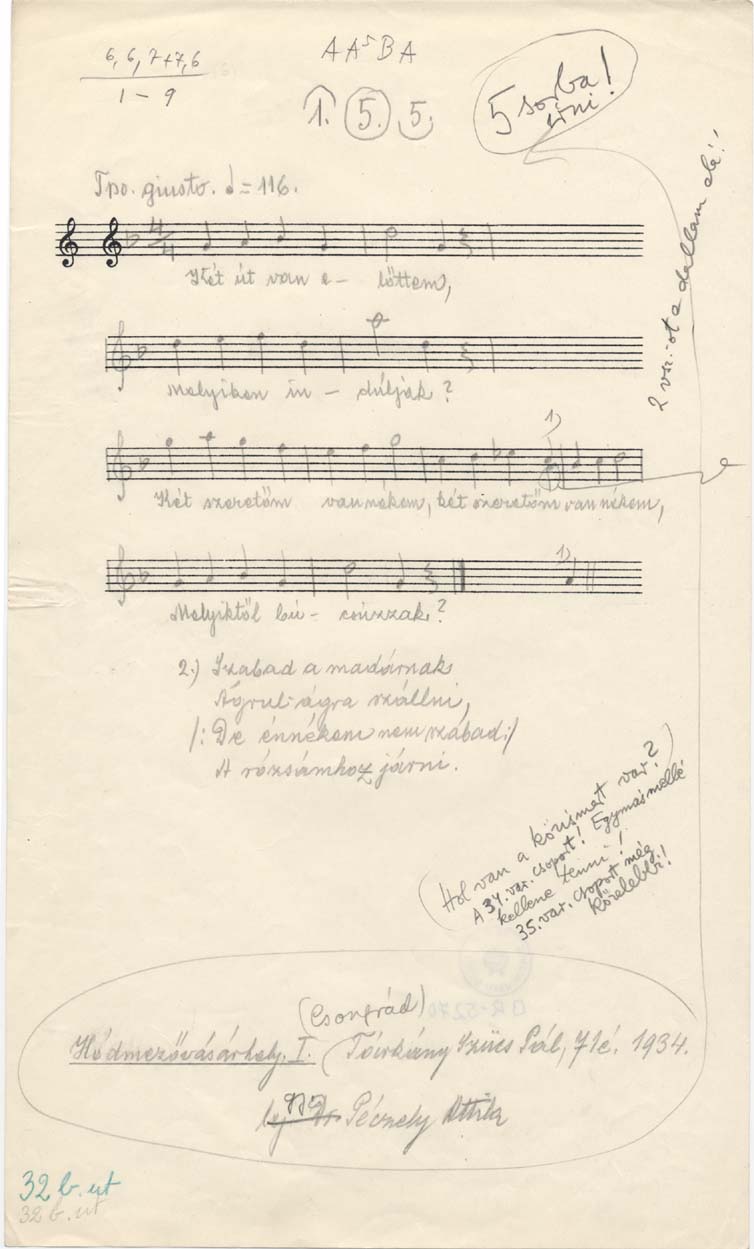 6, 6, 7+7, 6
1 – 9
A A⁵ B A
1. 5. 5.
5 sorba!
írni!
2 vsz.-ot a dallam alá!
Tpo. giusto. ♩ = 116.
4/4
Két út van e- lőttem,
Melyiken in - dúljak?
1)
Két szeretőm van nekem, két szeretőm van nékem,
1)
Melyiktől bú- csúzzak?
2.) Szabad a madárnak
Ágrul-ágra szállni,
/: De énnékem nem szabad :/
A rózsámhoz járni.
(Hol van a közismert var?
A 34. var. csoport! Egymás mellé
kellene tenni!
35. var. csoport még
közelebb!)
BR-5270
(Csongrád)
Hódmezővásárhely. I. (Tárkány Szücs Pál, 71é. 1934.
gy. Dr. Péczely Attila
32 b. ut
32 b. ut